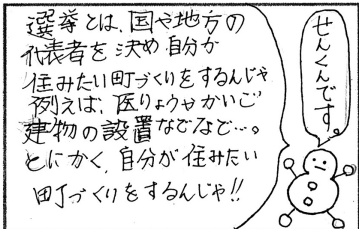 選挙とは、国や地方の
代表者を決め自分が
住みたい町づくりをするんじゃ
例えば、医りょうやかいご
建物の設置などなど…。
とにかく、自分が住みたい
町づくりをするんじゃ!!
せんくんです。